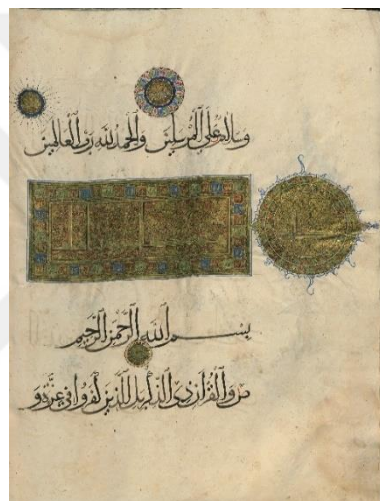 وسلم على المرسلين والحمد لله رب العالمين
بسم الله الرحمن الرحيم
ص والقرآن ذي الذكر بل الذين كفروا في عزة و